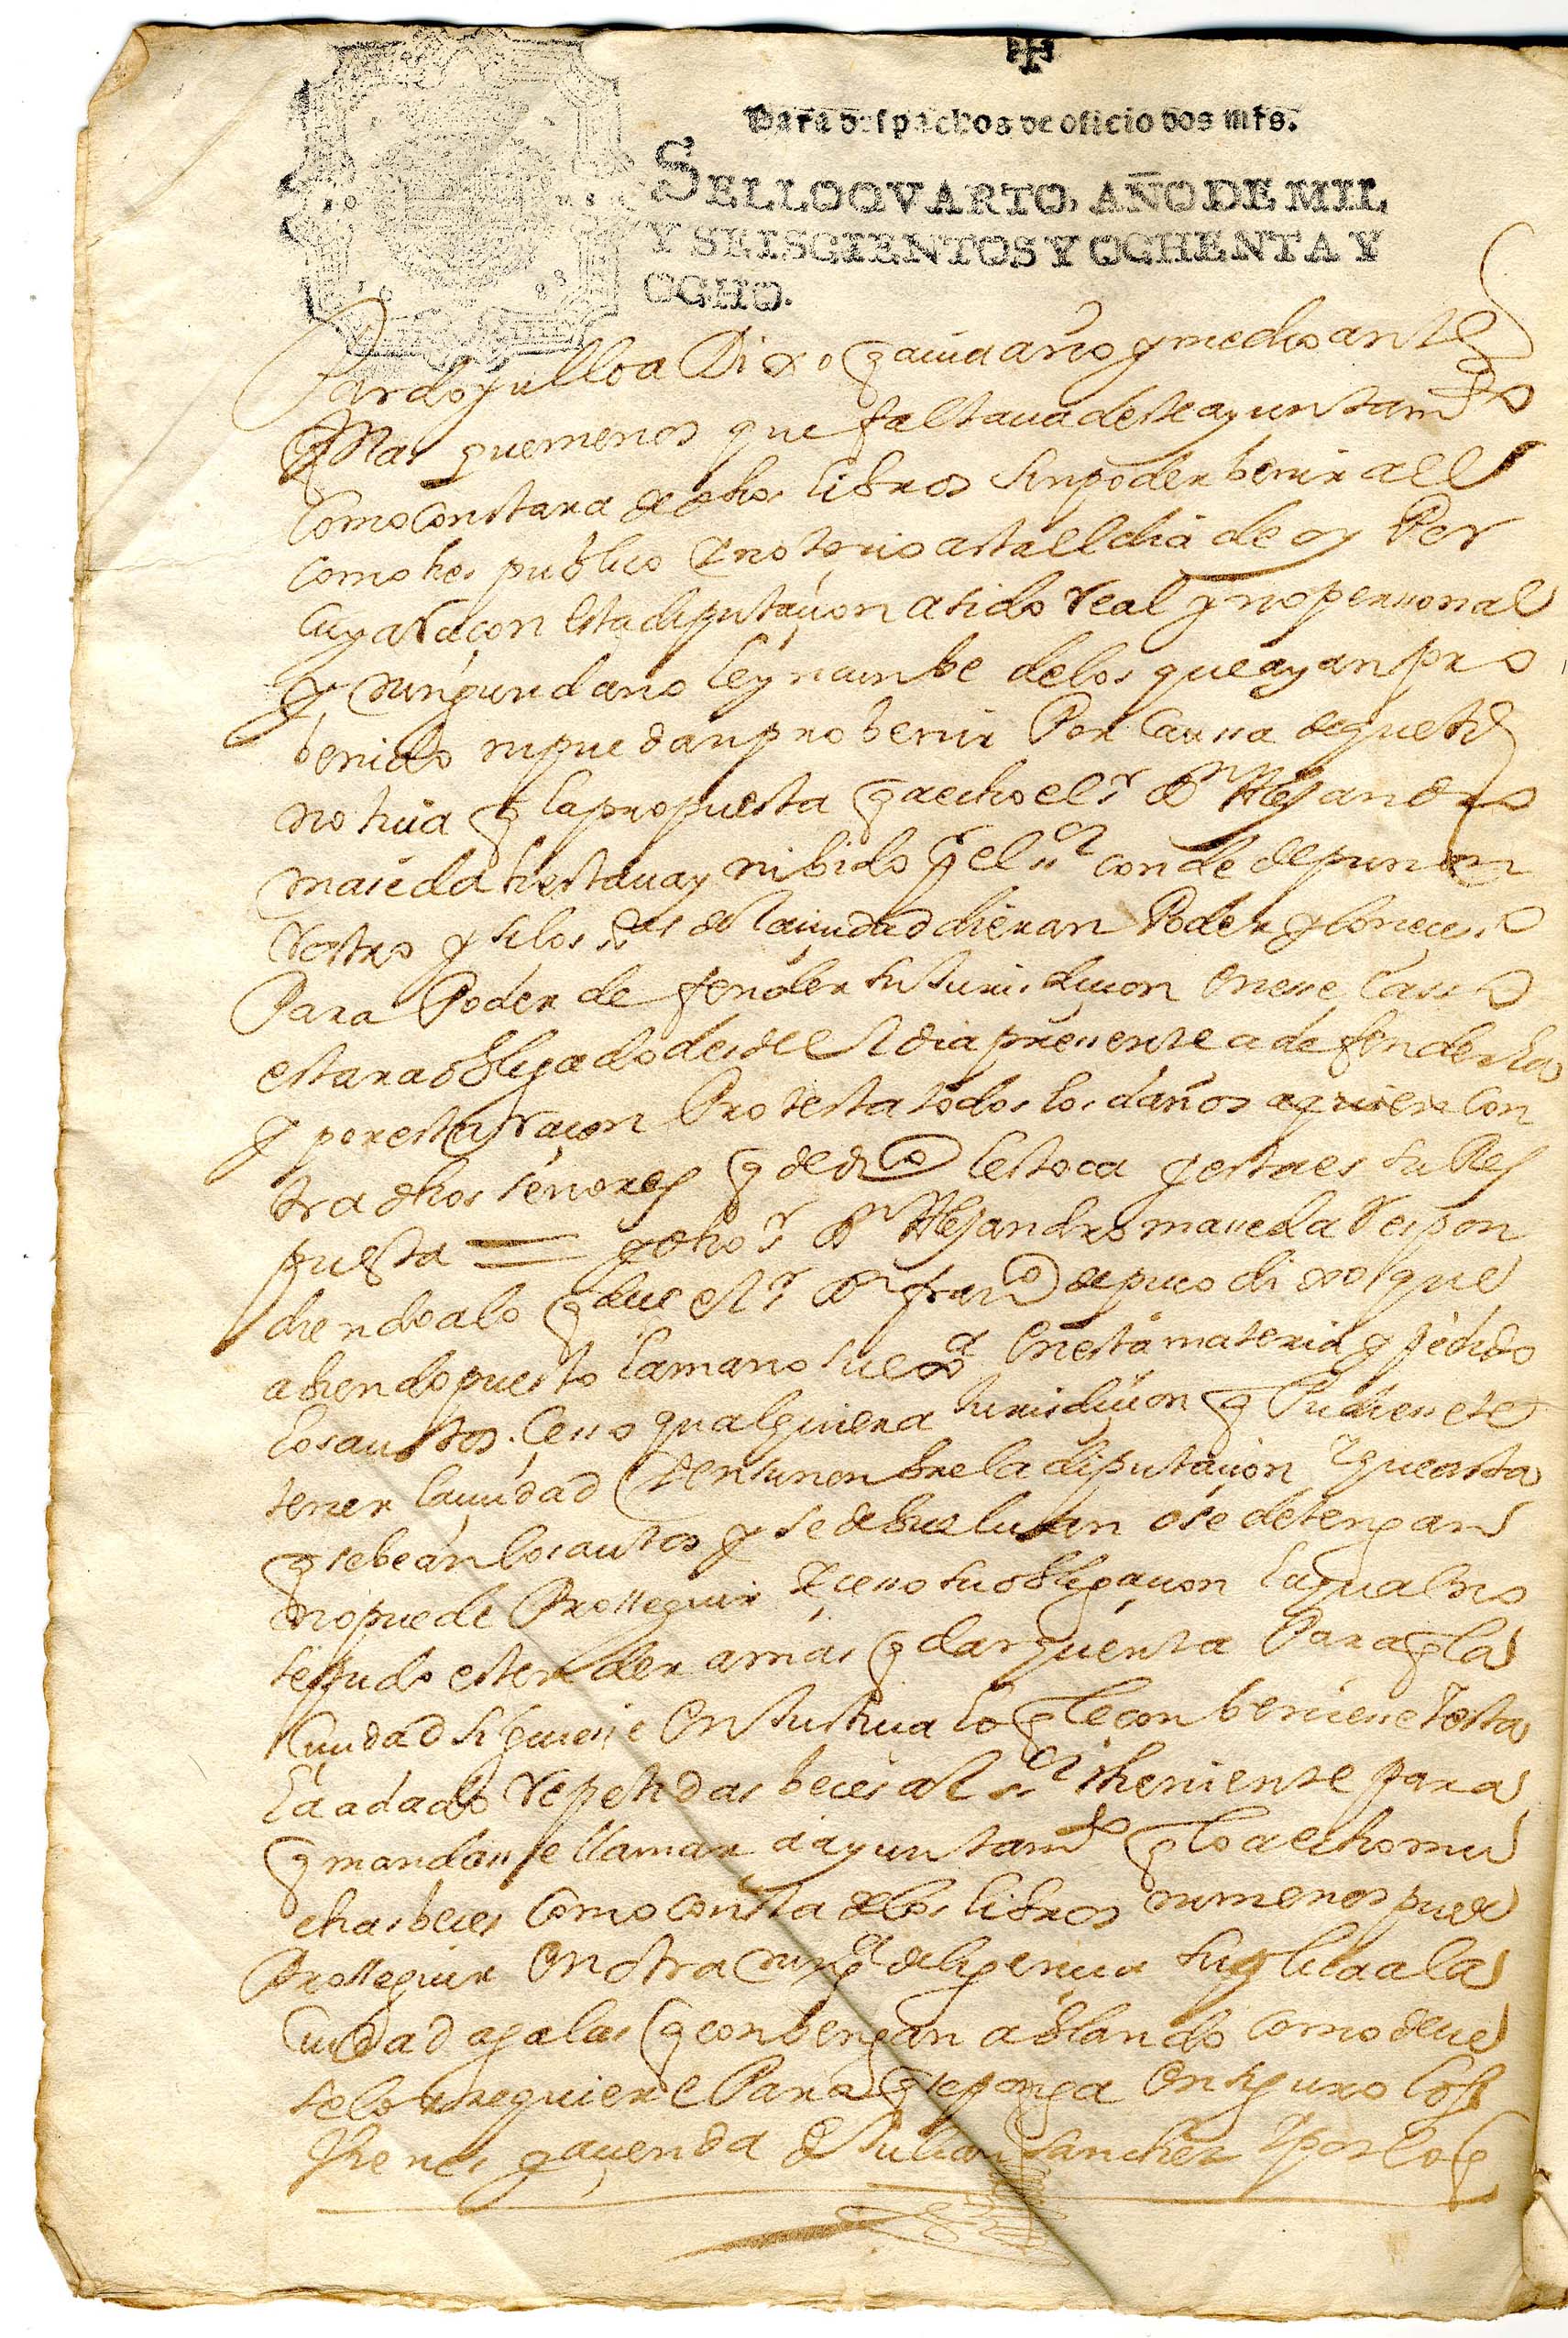 Para despachos de oficio dos mrs.
SELLO QVARTO, AÑO DE MIL
Y SEISCIENTOS Y OCHENTA Y
OCHO.
Pardo y ulloa Dixo q auia año y medio antes
Mas que menos que faltaua deste ayuntamto
Como Constara de dhos libros sin poder benir a el
Como hes publico y notorio asta el dia de oy Por
Cuya Raçon esta diputaçion a sido Real y no personal
y ningun dano le ynCunbe de los que ayan pro
benido ni puedan probenir Por Caussa de que
no hiia q la propuesta q a echo el sr dn Alejandro
maseda hestaua ynibido pr el sr conde de puñon
Rostro y si los srs de la ciudad dieran Poder y
Para Poder defender su Jurisdicion en ese Casso
estara obligado desde el dia pressente a defenderla
y por esta Raçon Protesta todos los daños contra
dhos señores q de dro les toca y esta es su Res
puesta = y dho sr dn Alejandro maseda Respon
diendo a lo q dice el sr dn franco de puço dixo que
abiendo puesto la mano su exa en esta materia y pedido
los autos Çesso qualquiera Jurisdiçion q Pudiesse
tener la ciudad y en su nonbre la diputaçion y que asta
q se bean los autos y se debuelban o se detengan
no puede Prosseguir y cesso su obligaçion la qual no
se pudo estender a mas q dar quenta Para q la
Ciudad siguiesse en Justicia lo q le conbeniesse y esta
la a dado Repetidas beces al sr theniente para
q mandasse llamar a ayuntamto q lo a echo mu
chas beces Como consta de los libros ni menos puede
Prosseguir en otra ninga deligencia suplica a la
Ciudad aga las q conbengan ablando como deue
se lo Requiere Para q se ponga en seguro los
Vienes y acienda de Julian sanchez y por lo q